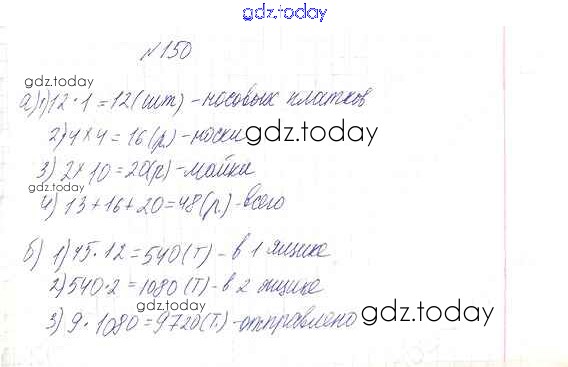 gdz.today
№150
gdz.today
а) 1) 12 · 1 = 12 (шт) - носовых платков
2) 4 × 4 = 16 (р) - носки gdz.today
3) 2 × 10 = 20(р) - майка
gdz.today
4) 13 + 16 + 20 = 48 (р.) - всего
б) 1) 45 · 12 = 540 (т) - в 1 ящике
2) 540 · 2 = 1080 (т) - в 2 ящике
3) 9 · 1080 = 9720 (т.) - отправлено gdz.today